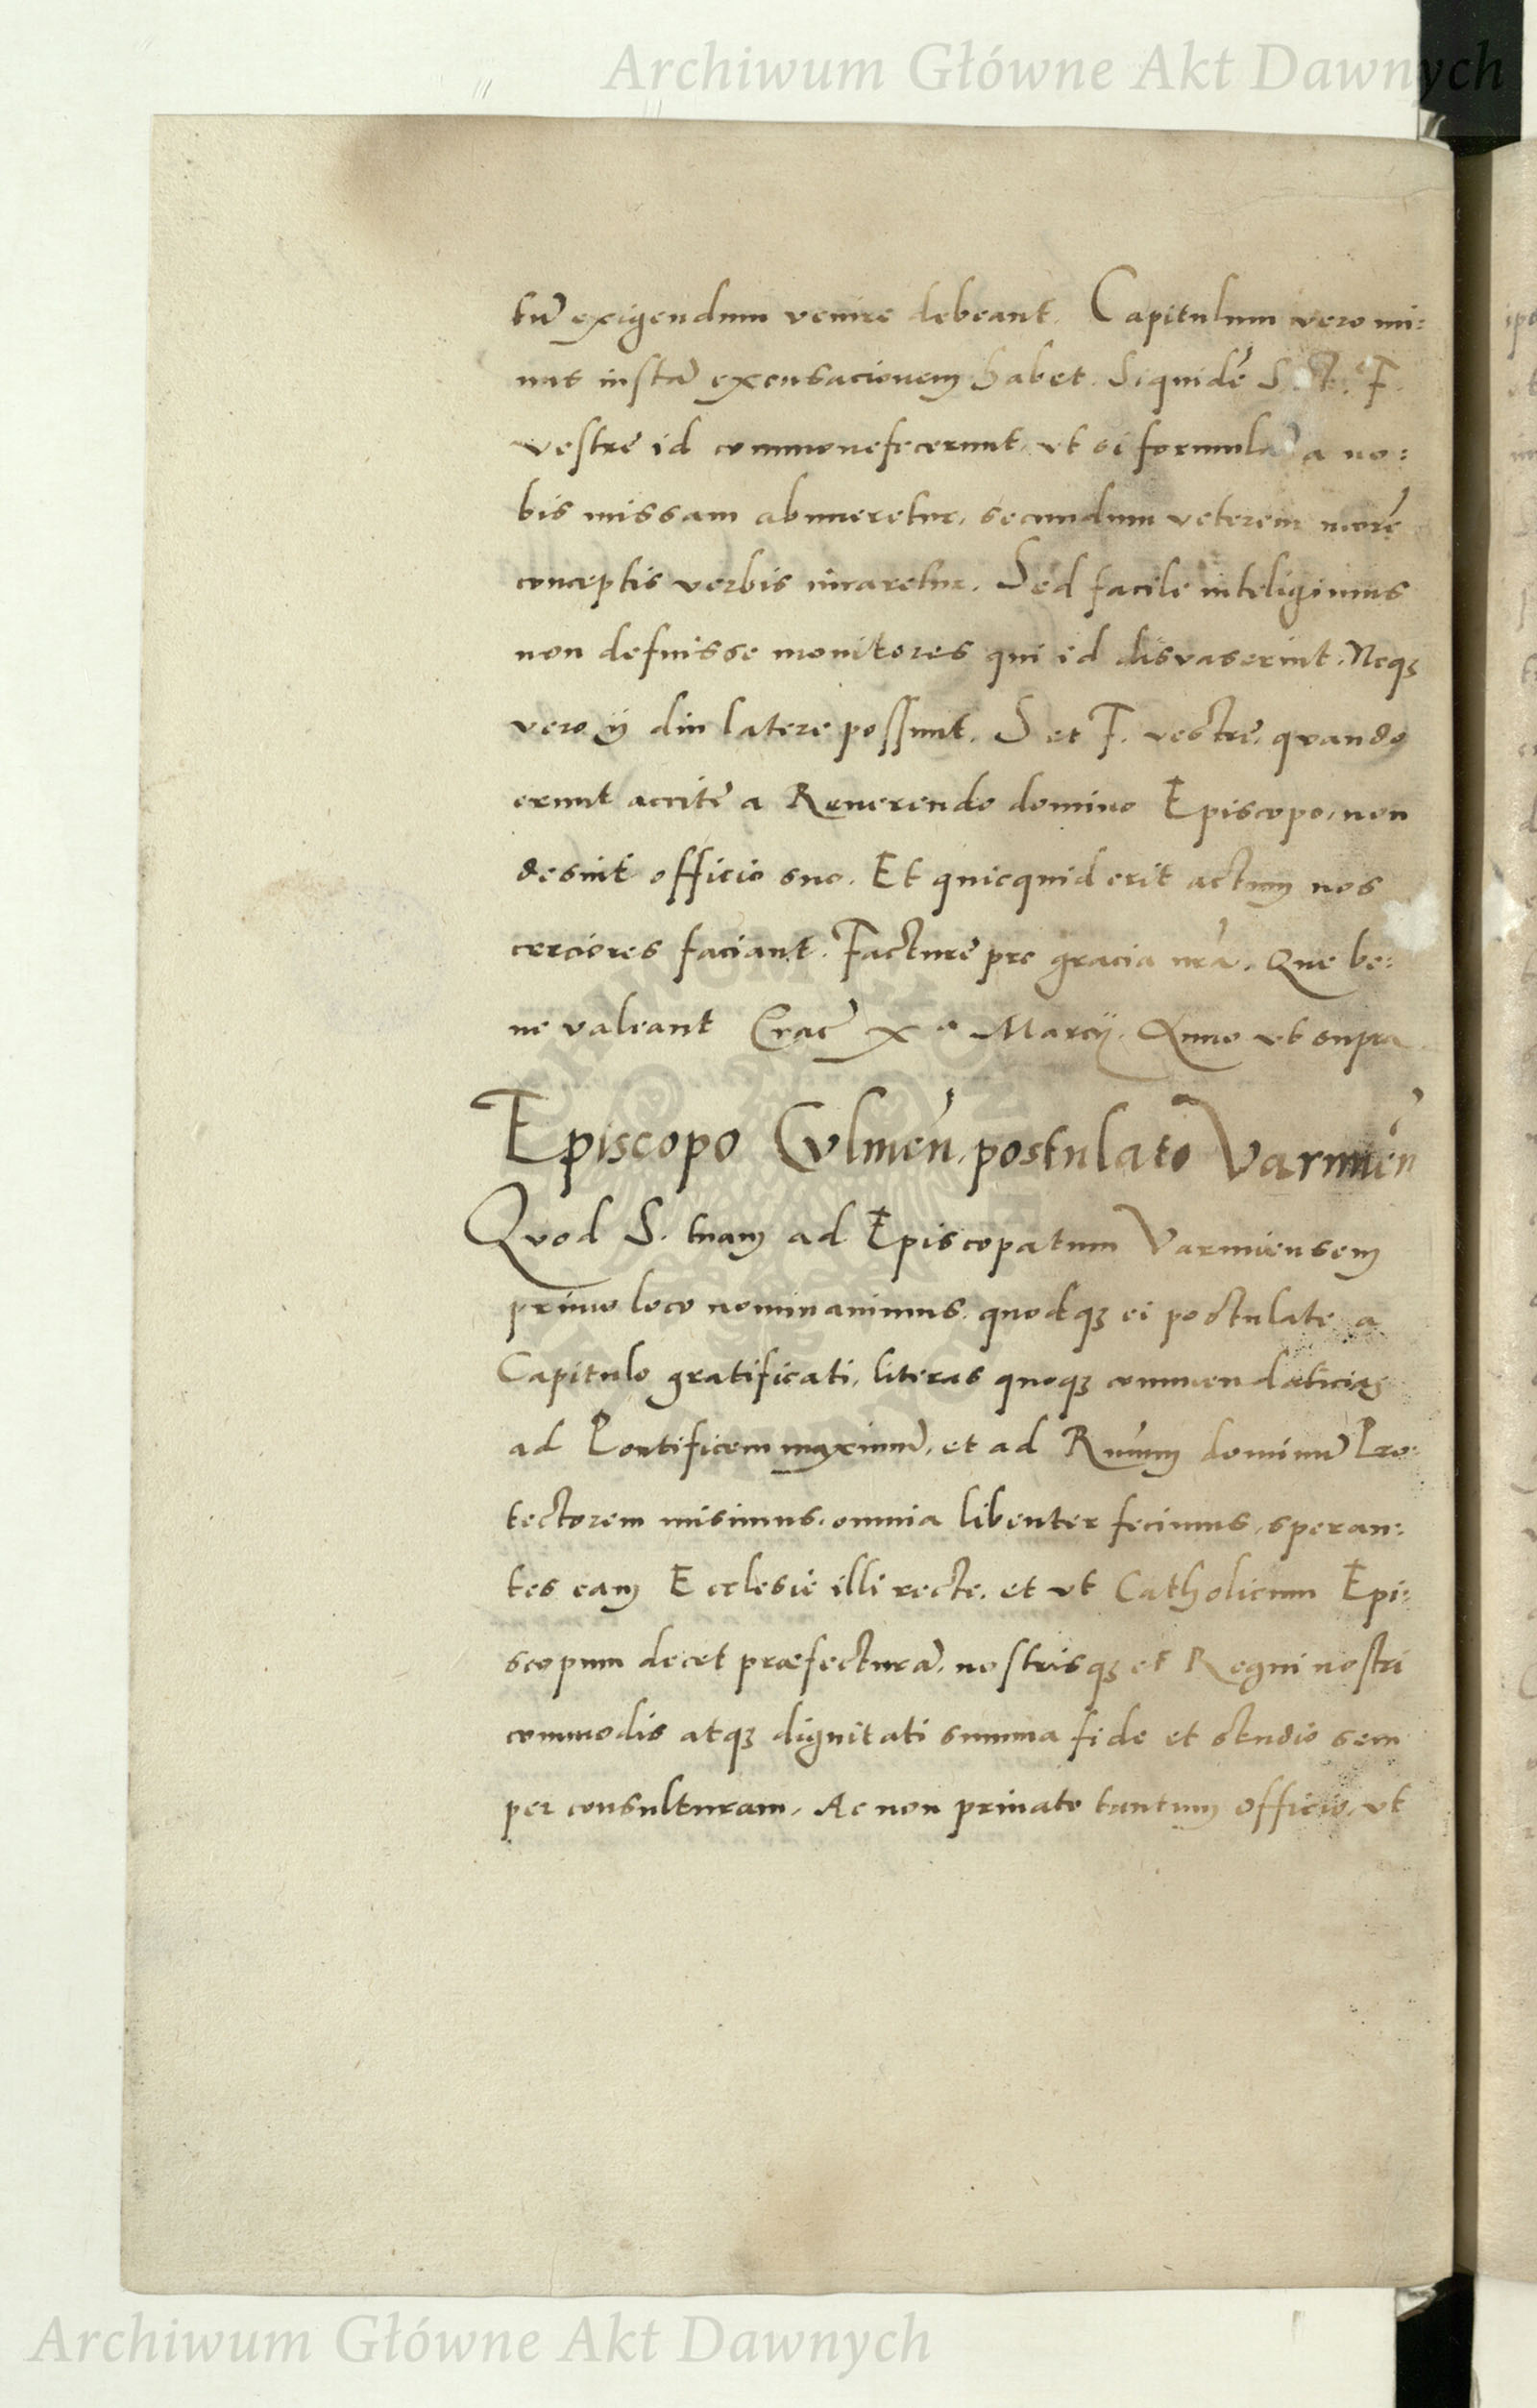 Archiwum Główne Akt Dawnych
tũ exigendum venire debeant. Capitulum vero mi:
nus iustã excusacionem habet. Siquidẽ S. et F.
vestrę id commonefecerunt, ut si formulã a no:
bis missam abnueretur, secundum veterem morẽ
conceptis verbis iuraretur. Sed facile inteligimus
non defuisse monitores qui id disvaserint. Neqȝ
vero ij diu latere possunt. S et F. vestrę, quando
erunt accitę a Reverendo domino Episcopo, non
desint officio suo. Et quicquid erit actum nos
cerciores faciant. Facturę pro gracia nrã. Que be:
ne valeant Crac̃ xᵃ Marcij. Anno ut supra
Episcopo Culmeñ, postulato Varmieñ
Quod S. tuam ad Episcopatum Varmiensem
primo loco nominavimus, quodqȝ ei postulate a
Capitulo gratificati, literas quoqȝ commendaticias
ad Pontificem maximũ, et ad Rm̃um dominũ Pro:
tectorem misimus, omnia libenter fecimus, speran:
tes eam Ecclesię illi recte, et ut Catholicum Epi:
scopum decet præfecturã, nostrisqȝ et Regni nostri
commodis atqȝ dignitati summa fide et studio sem
per consulturam. Ac non privato tantum officio, ut
Archiwum Główne Akt Dawnych